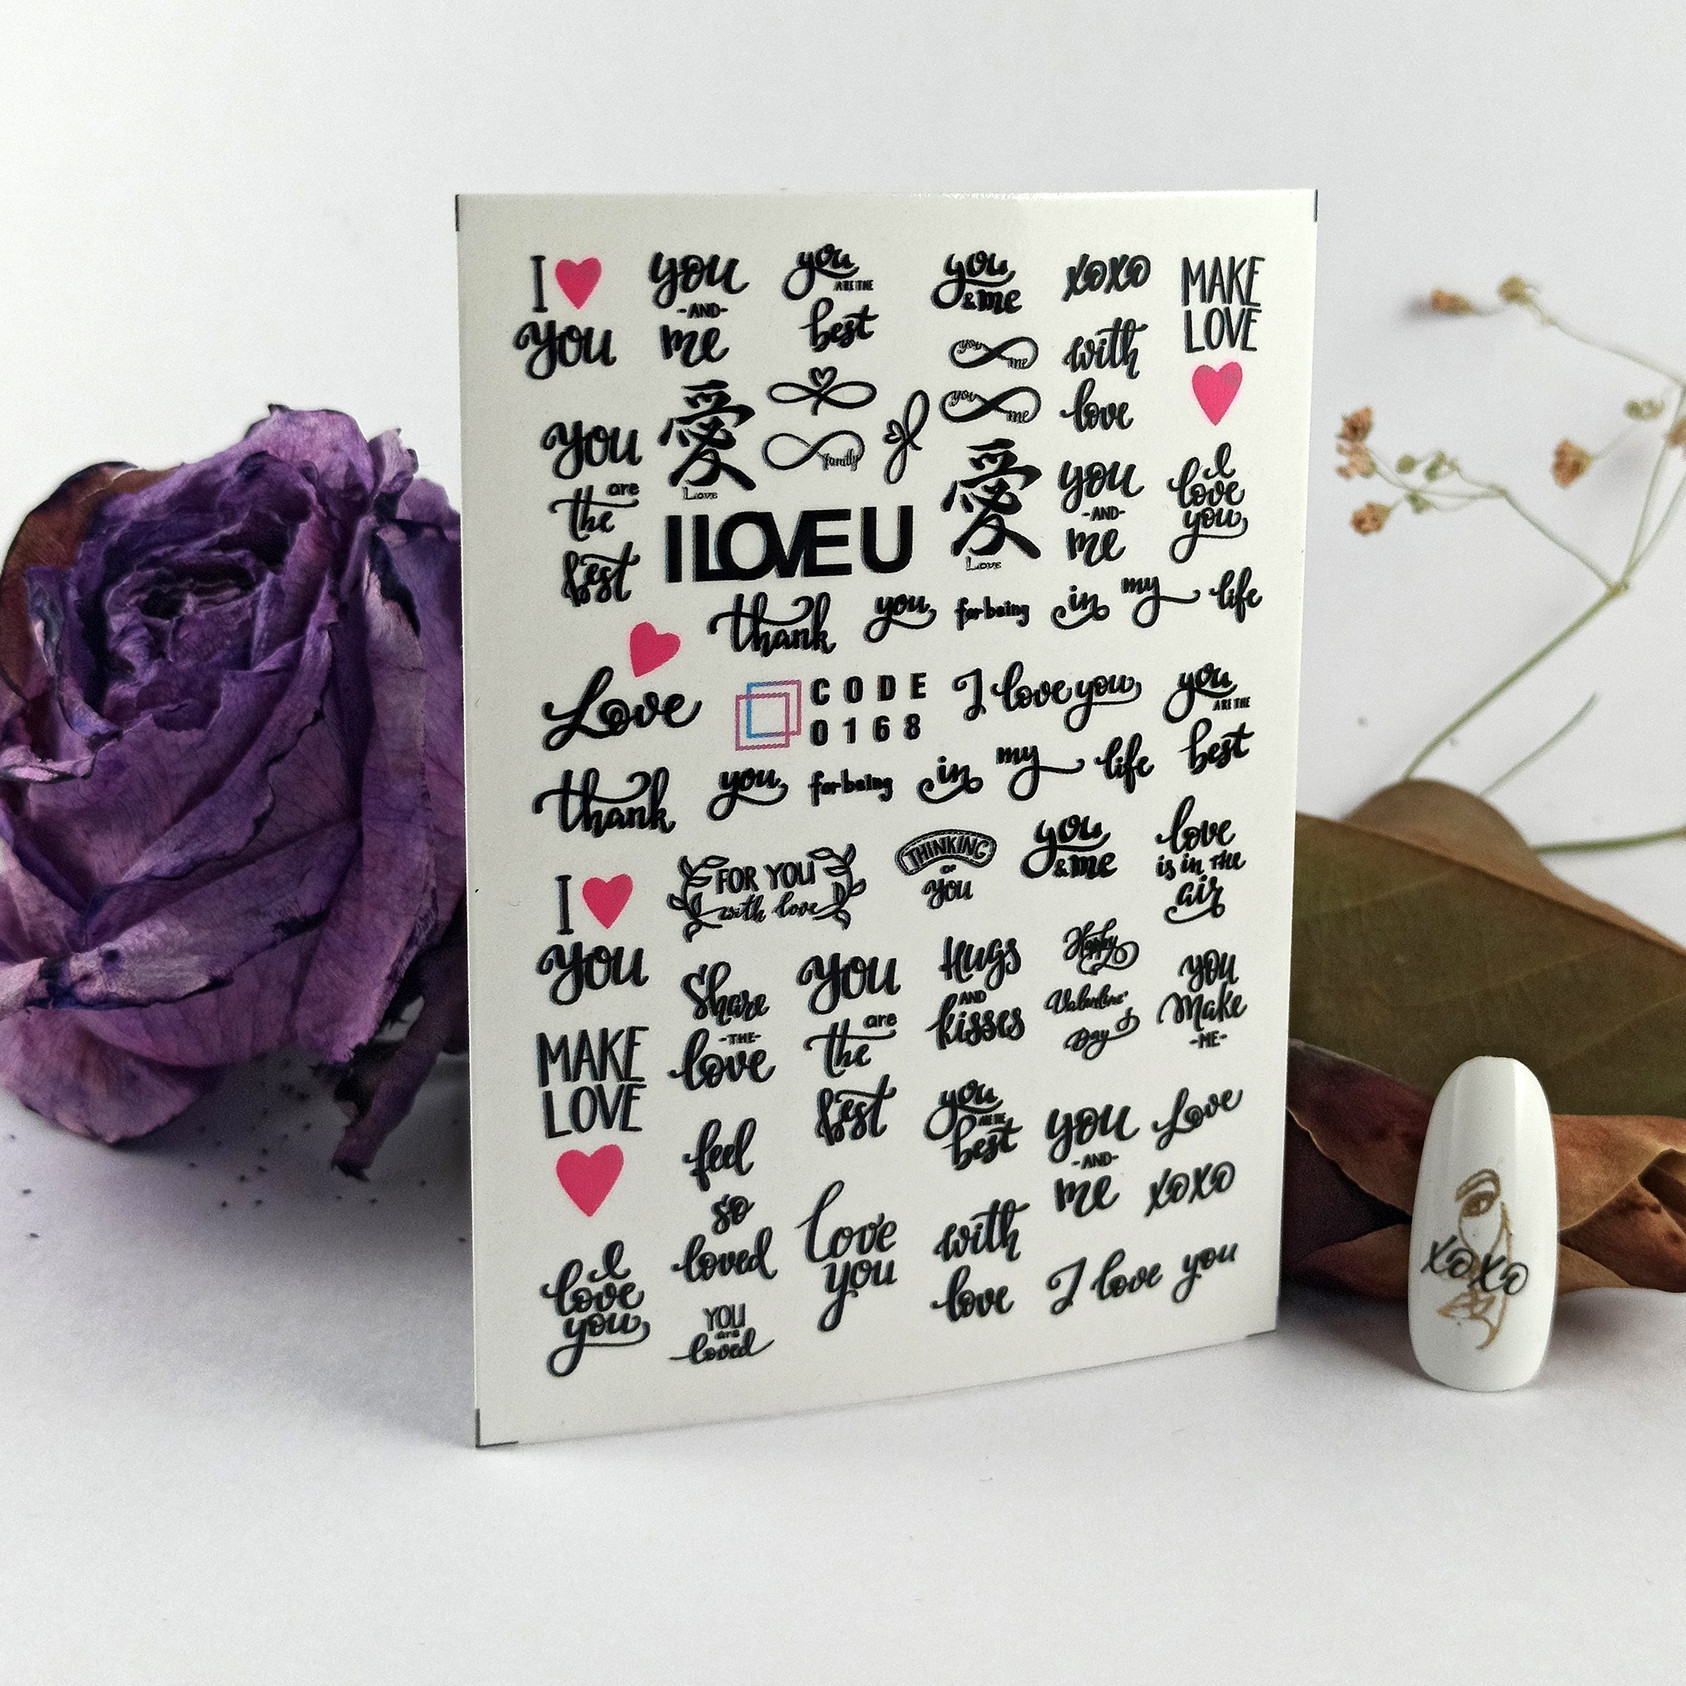 I
You
you
-AND-
me
you
ARE THE
best
you
&me
xoxo
with
love
MAKE
LOVE
You
are
the
Best
愛
Love
family
you
me
you
me
愛
Love
you
-AND-
me
I
love
you
I LOVE U
thank you for being in my life
Love
CODE
0168
I love you
you
ARE THE
best
thank you for being in my life
I
You
FOR YOU
with love
THINKING
OF
you
you
&me
love
is in THE
air
MAKE
LOVE
Share
-THE-
love
You
are
the
Best
Hugs
AND
kisses
Happy
Valentine's
Day
you
Make
-ME-
feel
so
loved
you
ARE THE
best
you
-AND-
me
Love
xoxo
I
love
you
YOU
are
loved
Love
you
with
love
I love you
xoxo